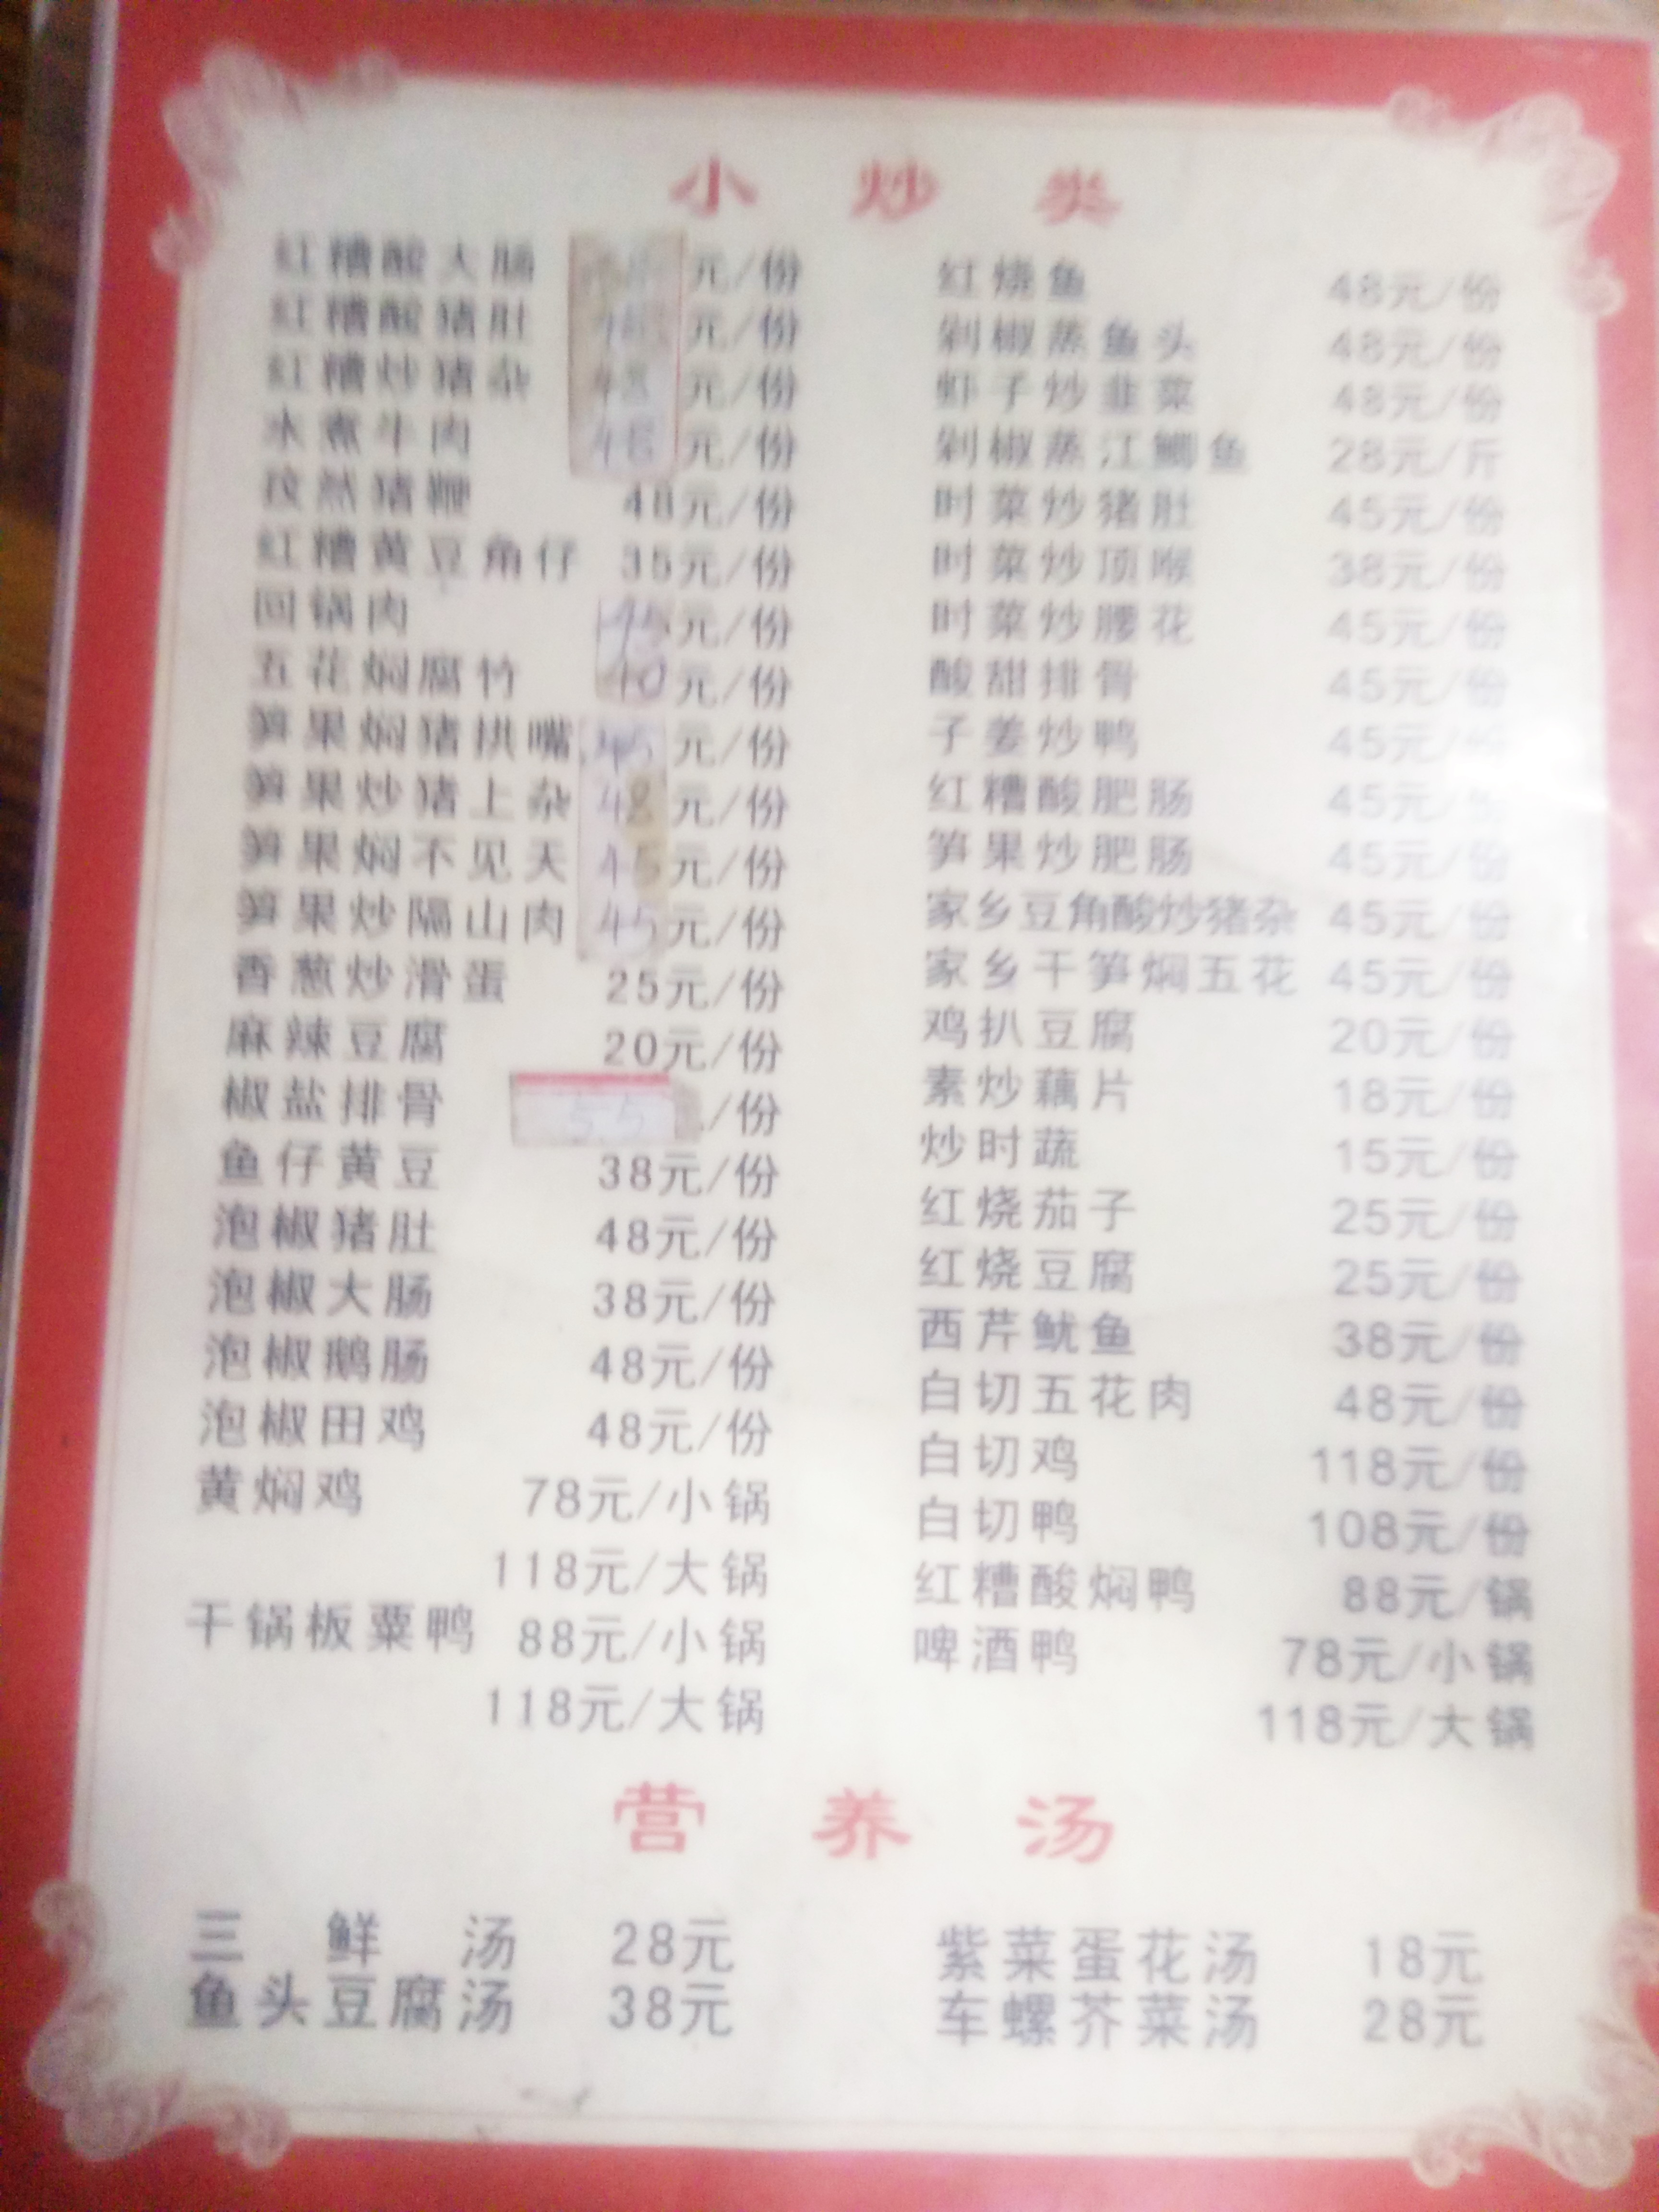 小炒类
红糟酸大肠 元/份
红糟酸猪肚 元/份
红糟炒猪杂 48元/份
水煮牛肉 48元/份
猪鞭 48元/份
红糟黄豆角仔 35元/份
回锅肉 45元/份
五花焖腐竹 40元/份
笋果焖猪拱嘴 45元/份
笋果炒猪上杂 48元/份
笋果焖不见天 45元/份
笋果炒隔山肉 45元/份
香葱炒滑蛋 25元/份
麻辣豆腐 20元/份
椒盐排骨 55/份
鱼仔黄豆 38元/份
泡椒猪肚 48元/份
泡椒大肠 38元/份
泡椒鹅肠 48元/份
泡椒田鸡 48元/份
黄焖鸡 78元/小锅
118元/大锅
干锅板粟鸭 88元/小锅
118元/大锅
红烧鱼 48元/份
剁椒蒸鱼头 48元/份
虾子炒韭菜 48元/份
剁椒蒸江鲫鱼 28元/斤
时菜炒猪肚 45元/份
时菜炒顶喉 38元/份
时菜炒腰花 45元/份
酸甜排骨 45元/份
子姜炒鸭 45元/份
红糟酸肥肠 45元/份
笋果炒肥肠 45元/份
家乡豆角酸炒猪杂 45元/份
家乡干笋焖五花 45元/份
鸡扒豆腐 20元/份
素炒藕片 18元/份
炒时蔬 15元/份
红烧茄子 25元/份
红烧豆腐 25元/份
西芹鱿鱼 38元/份
白切五花肉 48元/份
白切鸡 118元/份
白切鸭 108元/份
红糟酸焖鸭 88元/锅
啤酒鸭 78元/小锅
118元/大锅
营养汤
三鲜汤 28元
鱼头豆腐汤 38元
紫菜蛋花汤 18元
车螺芥菜汤 28元